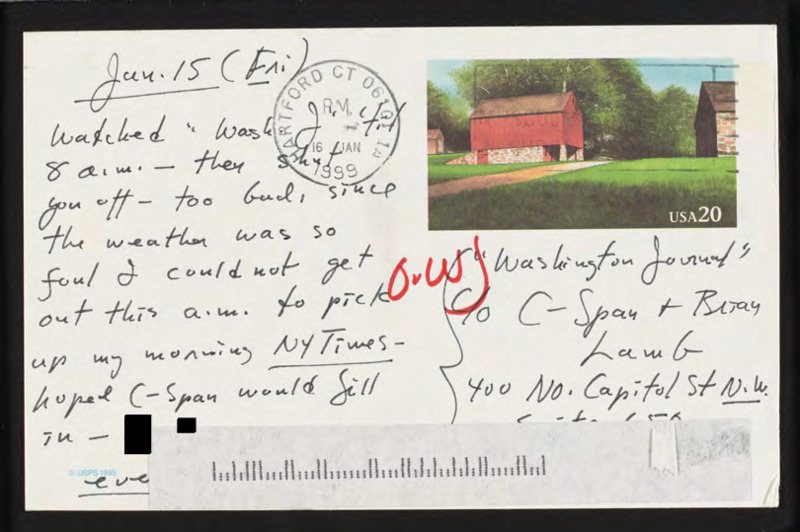 Jan. 15 (Fri)
Watched "Wash J." 'til
8 a.m. — then shut
you off — too bad, since
the weather was so
foul I could not get
out this a.m. to pick
up my morning NY Times —
hoped C-Span would fill
in —
© USPS 1995
HARTFORD CT 061
P.M.
16 JAN
1999
USA20
O.WJ
"Washington Journal"
c/o C-Span + Brian
Lamb
400 No. Capitol St N.W.